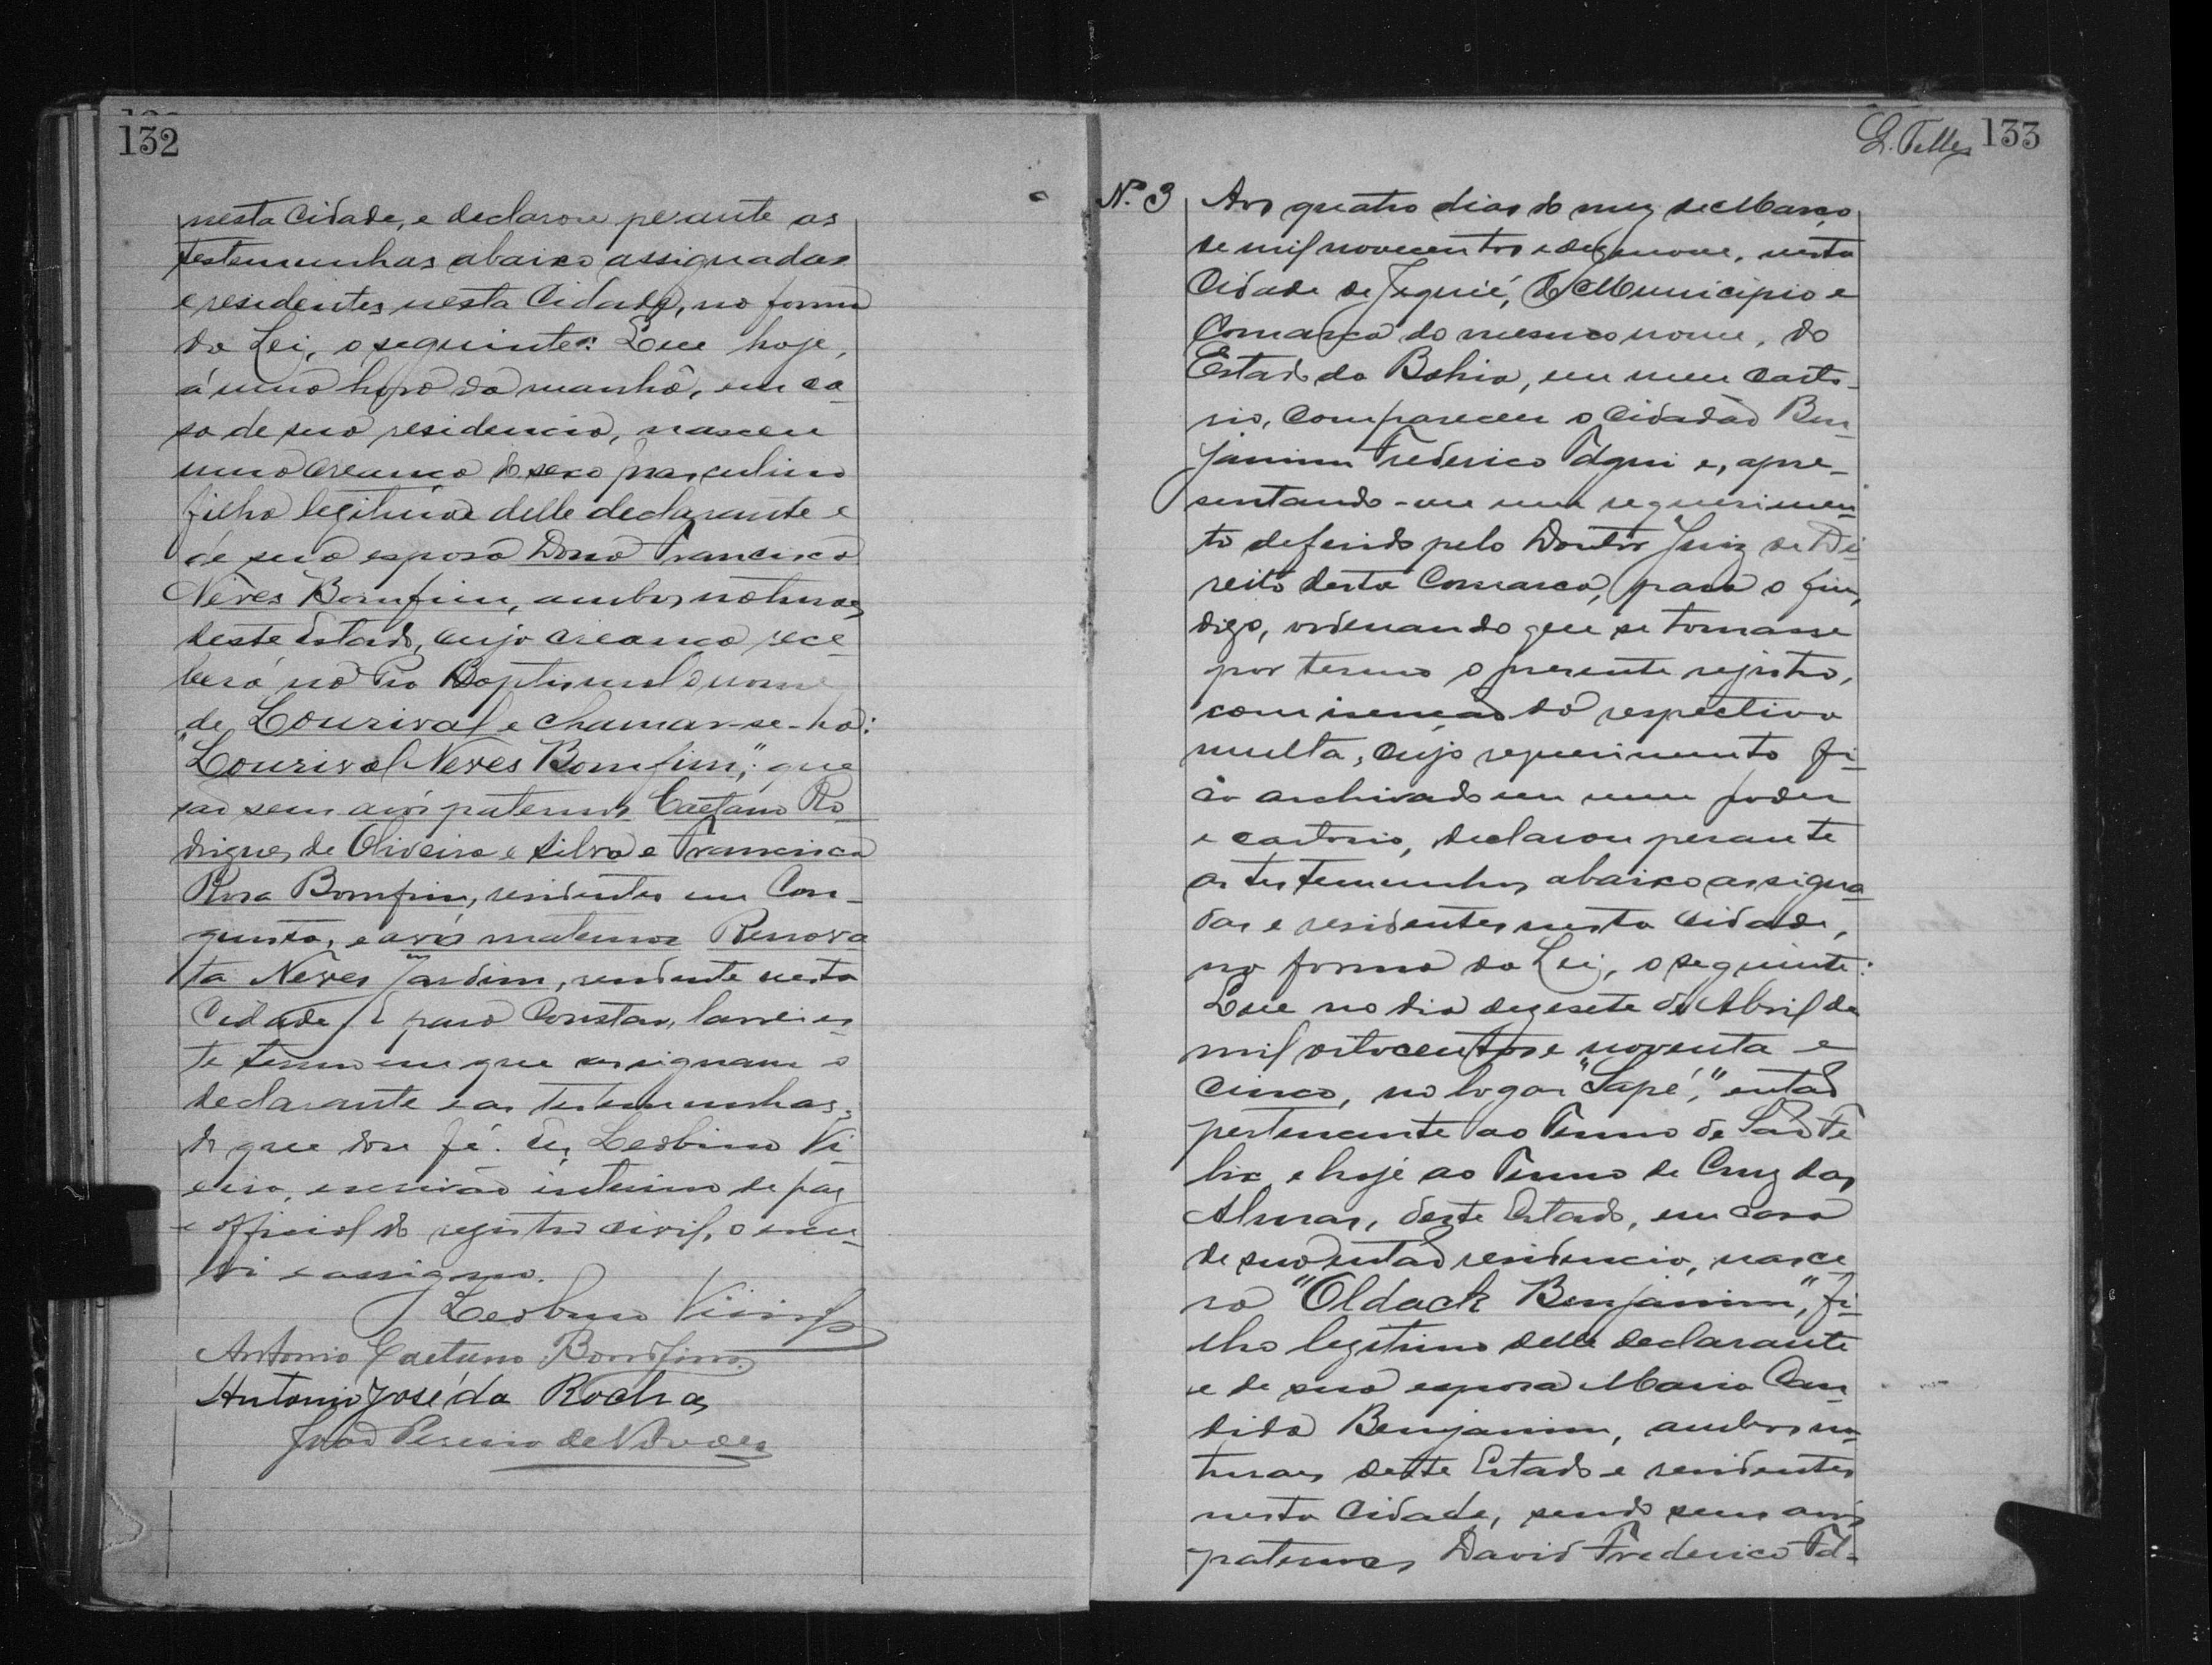 132
nesta Cidade, e declarou perante as
testemunhas abaixo assignadas
e residentes nesta Cidade, na forma
da Lei, o seguinte: Que hoje,
á uma hora da manhã, em ca-
sa de sua residencia, nasceu
uma creança do sexo masculino
filho legitimo delle declarante e
de sua esposa Dona Francisca
Neves Bomfim, ambos naturaes
deste Estado, cuja creança rece-
berá na Pia Baptismal o nome
de Lourival e chamar-se-ha:
"Lourival Neves Bomfim", que
são seus avós paternos Caetano Ro-
drigues de Oliveira e Silva e Francisca
Rosa Bomfim, residentes em Con-
quista, e avós maternos Renova
ta Neves Jardim, residente nesta
Cidade. E para Constar, lavrei es-
te termo em que assignam o
declarante e as testemunhas,
do que dou fé. Eu, Leobino Vi-
eira, escrivão interino de paz
e official do registro civil, o escre-
vi e assigno.
Leobino Vieira
Antonio Caetano Bomfim
Antonio José da Rocha
João Pereira de
L. Telles 133
Nº. 3 Aos quatro dias do mez de Março
de mil novecentos e dezenove, nesta
Cidade de Jequié, do Municipio e
Comarca do mesmo nome, do
Estado da Bahia, em meu Carto-
rio, compareceu o Cidadão Ben-
jamim Frederico Tdgni e, apre-
sentando-me um requerimen-
to deferido pelo Doutor Juiz de Di-
reito desta Comarca, para o fim,
digo, ordenando que se tomasse
por termo o presente registro,
com isenção da respectiva
multa, cujo requerimento fi-
ca archivado em meu poder
e cartorio, declarou perante
as testemunhas abaixo assigna-
das e residentes nesta Cidade,
na forma da Lei, o seguinte:
Que no dia dezesete de Abril de
mil oitocentos e noventa e
cinco, no logar "Sapé", então
pertencente ao Termo de São Fe
lix e hoje ao Termo de Cruz das
Almas, deste Estado, em casa
de sua então residencia, nasce
ra "Oldack Benjamim", fi-
lho legitimo delle declarante
e de sua esposa Maria Can-
dida Benjamim, ambos na-
turaes deste Estado e residentes
nesta Cidade, sendo seus avós
paternos David Frederico Td-